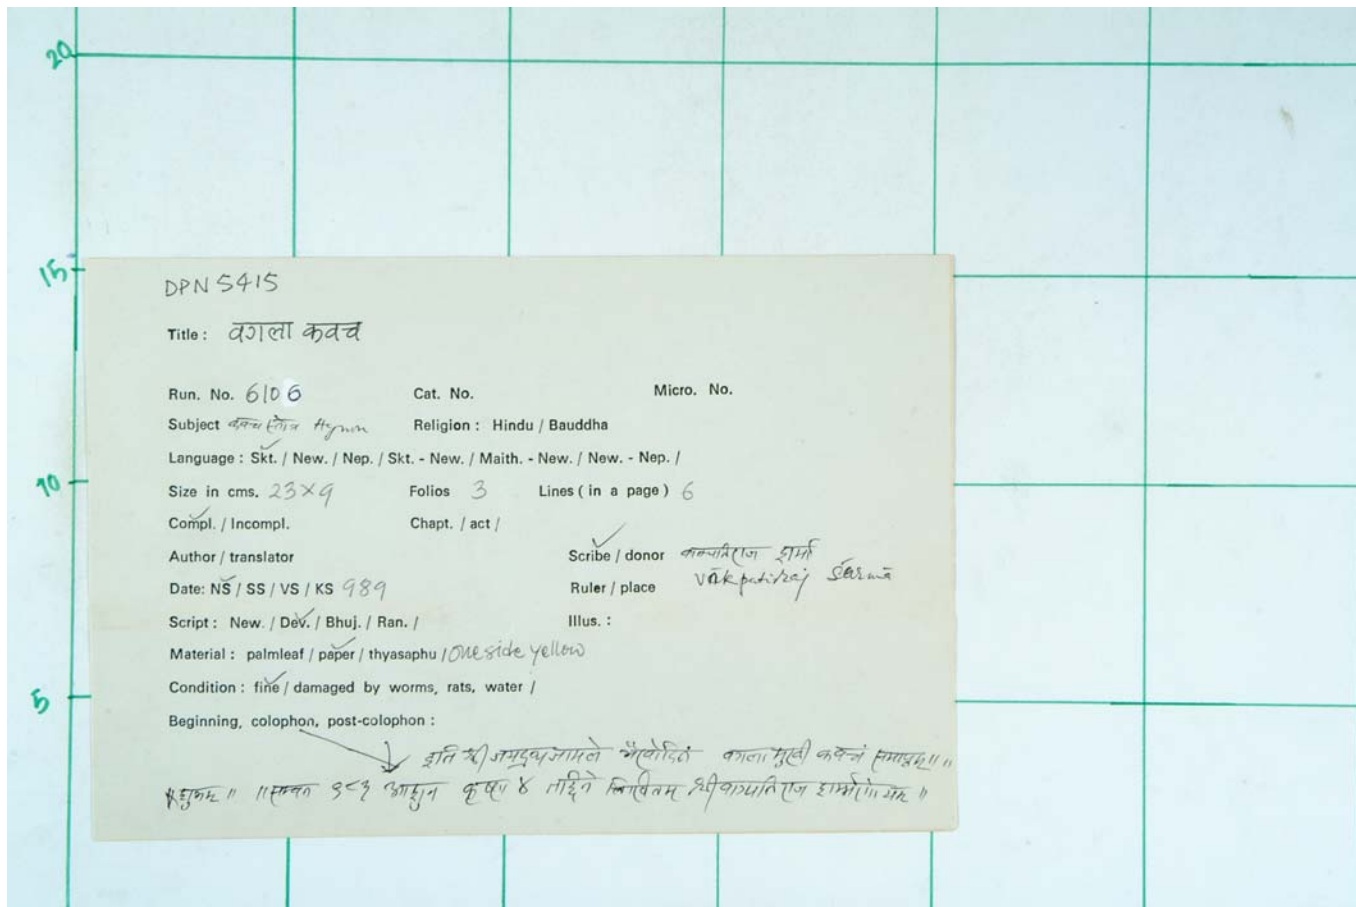 20
15
DPN 5415
Title : वगला कवच
Run. No. 6106 Cat. No. Micro. No.
Subject कवच स्तोत्र Hymn Religion : Hindu / Bauddha
Language : Skt. / New. / Nep. / Skt. - New. / Maith. - New. / New. - Nep. /
10
Size in cms. 23×9 Folios 3 Lines ( in a page ) 6
Compl. / Incompl. Chapt. / act /
Author / translator Scribe / donor शर्मा
Date: NS / SS / VS / KS 989 Ruler / place Vākpatiraj Śarmā
Script : New. / Dev. / Bhuj. / Ran. / Illus. :
Material : palmleaf / paper / thyasaphu / One side yellow
Condition : fine / damaged by worms, rats, water /
5
Beginning, colophon, post-colophon :
इति श्री कवचं समाप्तम् ॥॥
शुभम् ॥ ॥ सम्वत ९८९ कृष्ण ४ तद्दिने लिखितम् श्री वाग्पतिराज